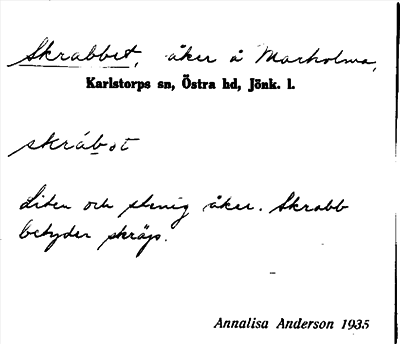 Skrabbet, åker å Marholma,
Karlstorps sn, Östra hd, Jönk. l.
skràbot
Liten och stenig åker. Skrabb
betyder skräp.
Annalisa Anderson 1935